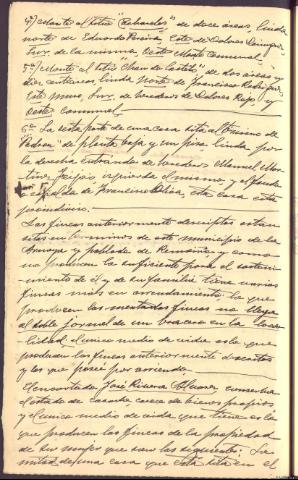 4ª) Monte al sitio "Rebardos" de doce áreas, linda
norte de Eduardo Pereira Este de Dolores
Sur de la misma, Oeste Monte Comunal.
5ª) Monte al sitio "Chan do Castro" de dos áreas y
diez centiareas, linda norte de Francisco Rodriguez,
Este muro, Sur de herederos de Dolores Rojo y
Oeste comunal
6ª La sexta parte de una casa sita al
de planta baja y un piso linda por
la derecha entrando de herederos Manuel
izquierda el mismo, y
de Francisco esta casa está
proindiviso.
Las fincas anteriormente descriptas estan
sitas en terminos de este municipio de la
y poblado de y como
no producen lo suficiente para el sosteni-
miento de él y de su familia tiene varias
fincas mas en arrendamiento, lo que
producen las mentadas fincas no llega
al doble jornal de un bracero en la loca-
lidad, el unico medio de vida es lo que
producen las fincas anteriormente descritas
y las que posee por arriendo.
El encartado José Rivera Alvarez conserva
el estado de casado carece de bienes propios
y el unico medio de vida que tiene es lo
que producen las fincas de la propiedad
de su mujer que son las siguientes: La
mitad de una casa que está sita en el